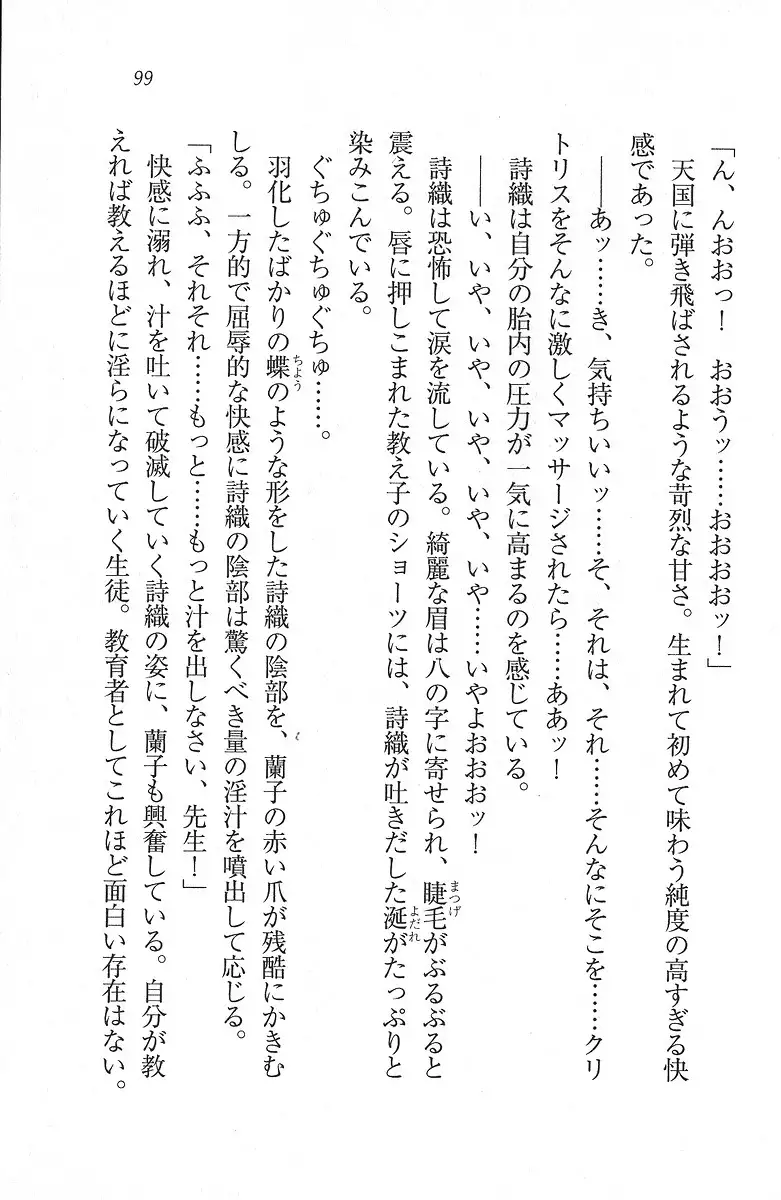 99
「ん、んおおっ！　おおうッ……おおおおッ！」
天国に弾き飛ばされるような苛烈な甘さ。生まれて初めて味わう純度の高すぎる快
感であった。
――あッ……き、気持ちいいッ……そ、それは、それ……そんなにそこを……クリ
トリスをそんなに激しくマッサージされたら……ああッ！
詩織は自分の胎内の圧力が一気に高まるのを感じている。
――い、いや、いや、いや、いや、いや……いやよおおおッ！
詩織は恐怖して涙を流している。綺麗な眉は八の字に寄せられ、睫毛がぶるぶると
まつげ
震える。唇に押しこまれた教え子のショーツには、詩織が吐きだした涎がたっぷりと
よだれ
染みこんでいる。
ぐちゅぐちゅぐちゅ……。
羽化したばかりの蝶のような形をした詩織の陰部を、蘭子の赤い爪が残酷にかきむ
ちよう
しる。一方的で屈辱的な快感に詩織の陰部は驚くべき量の淫汁を噴出して応じる。
「ふふふ、それそれ……もっと……もっと汁を出しなさい、先生！」
快感に溺れ、汁を吐いて破滅していく詩織の姿に、蘭子も興奮している。自分が教
えれば教えるほどに淫らになっていく生徒。教育者としてこれほど面白い存在はない。